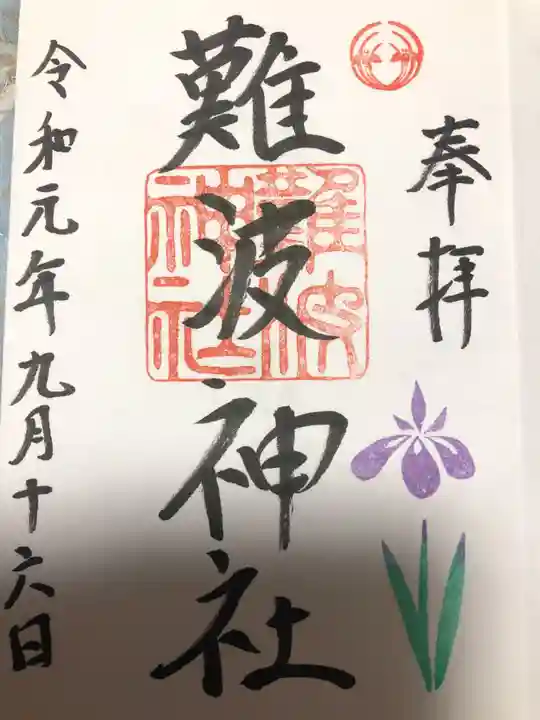 奉拝
難波神社
令和元年九月十六日